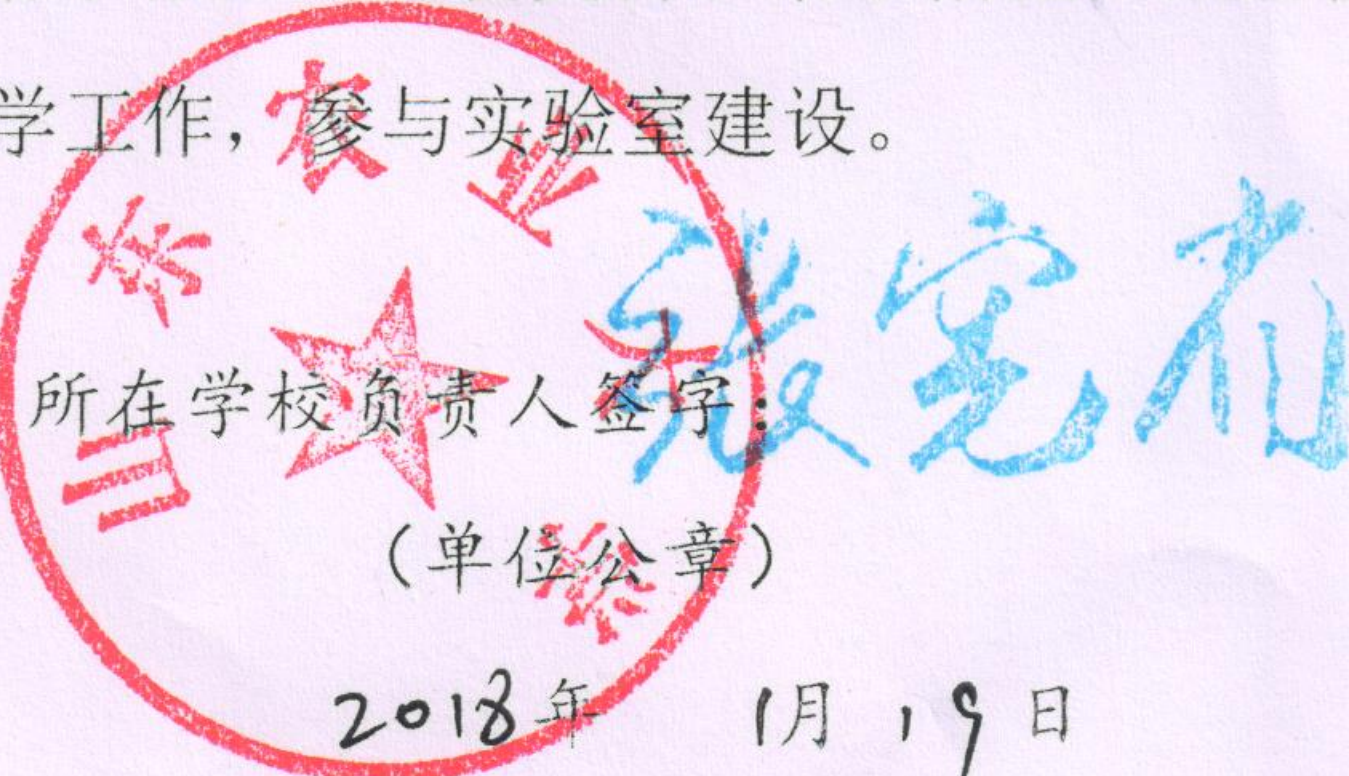 学工作，参与实验室建设。
山东农业大学
所在学校负责人签字：张宪省
（单位公章）
2018年 1月 19日